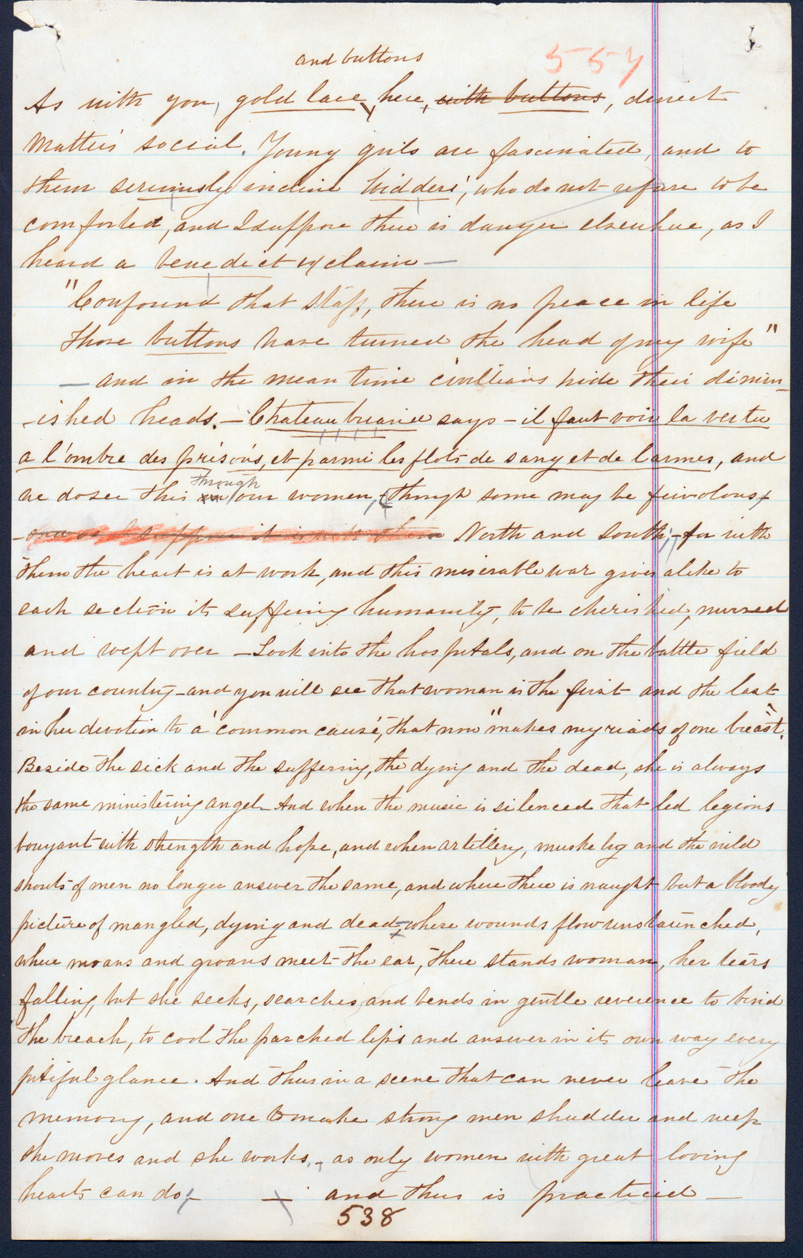 and buttons
557
As with you, gold lace, here, with buttons, direct
Matters social. Young girls are fascinated, and to
them seriously incline 'bidders', who do not refuse to be
comforted, and I suppose there is danger elsewhere, as I
heard a benedict exclaim —
"Confound that staff, there is no peace in life
Those buttons have turned the head of my wife"
— and in the mean time civilians hide their dimin-
-ished heads. — Chateaubriand says — il faut voir la vertu
a l'ombre des prisons, et parmi les flots de sang et de larmes, and
we do see this
through
our women, though some may be frivolous,
North and South, — for with
them the heart is at work, and this miserable war gives alike to
each section its suffering humanity, to be cherished, nursed
and wept over — Look into the hospitals, and on the battle field
of our country — and you will see that woman is the first and the last
in her devotion to a 'common cause', that now "makes myriads of one breast".
Beside the sick and the suffering, the dying and the dead, she is always
the same ministering angel — And when the music is silenced that led legions
bouyant with strength and hope, and when artillery, musketry and the wild
shouts of men no longer answer the same, and where there is naught but a bloody
picture of mangled, dying and dead, — where wounds flow unstaunched,
where moans and groans meet the ear, there stands woman, her tears
falling, but she seeks, searches and bends in gentle reverence to bind
the breach, to cool the parched lips and answer in its own way every
pitiful glance. And thus in a scene that can never leave the
memory, and one to make strong men shudder and weep
she moves and she works, — as only women with great loving
hearts can do, — — and thus is practiced —
538